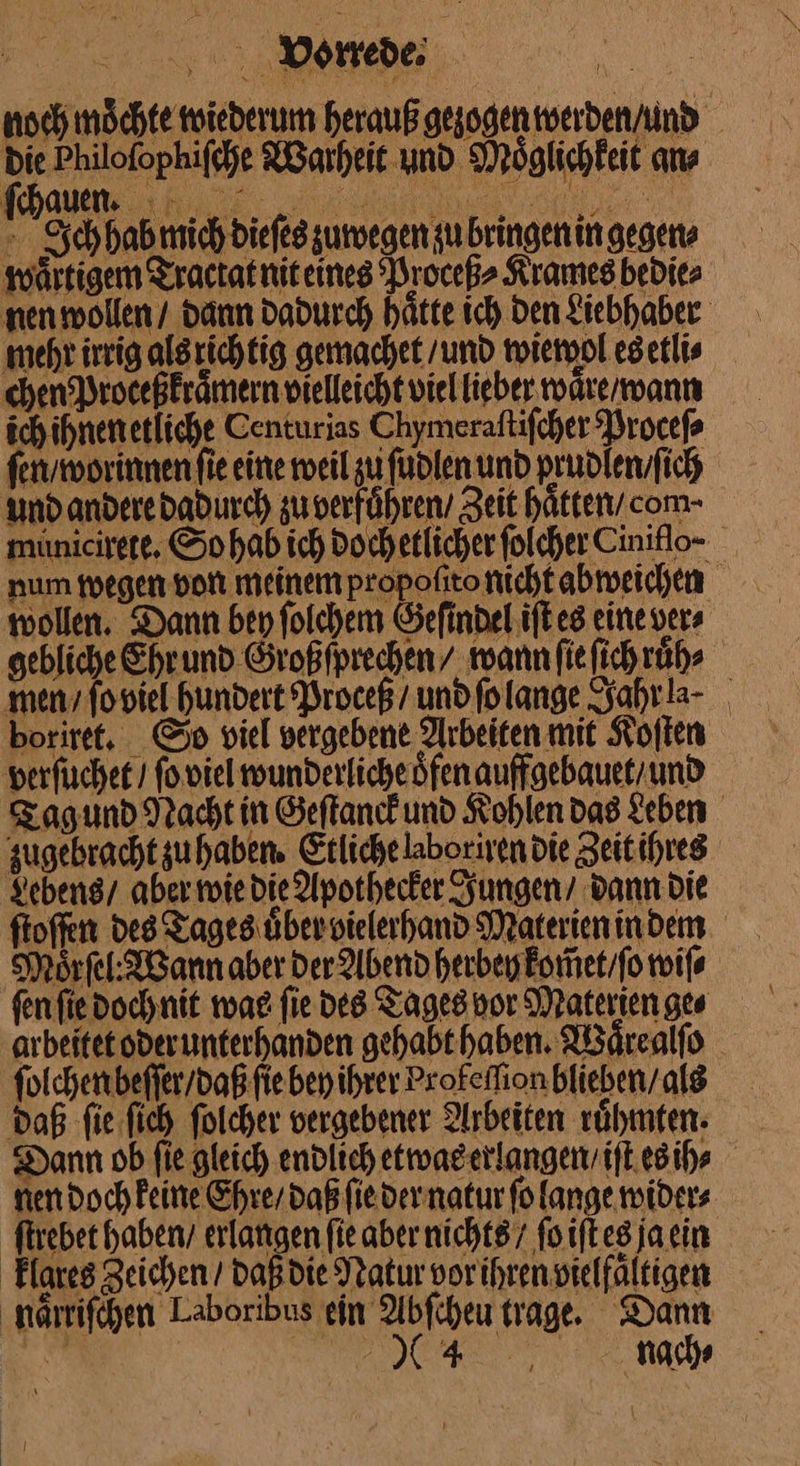 Vorrede.
noch moͤchte wiederum herauß gezogen werden/und
die Philoſophiſche Warheit und Moͤglichkeit an⸗
ſchauen.
Ich hab mich dieſes zuwegen zu bringen in gegen⸗
waͤrtigem Tractat nit eines Proceß⸗Krames bedie⸗
nen wollen/ dann dadurch haͤtte ich den Liebhaber
mehr irrig als richtig gemachet/und wiewol es etli⸗
chen Proceßkraͤmern vielleicht viel lieber waͤre/wann
ich ihnen etliche Centurias Chymeraſtiſcher Proceſ⸗
ſen/worinnen ſie eine weil zu ſudlen und prudlen/ſich
und andere dadurch zu verfuͤhren/ Zeit haͤtten/com-
municirete. So hab ich doch etlicher ſolcher Ciniflo-
num wegen von meinem propoſito nicht abweichen
wollen. Dann bey ſolchem Geſindel iſt es eine ver⸗
gebliche Ehr und Großſprechen/ wann ſie ſich ruͤh⸗
men/ ſo viel hundert Proceß/ und ſo lange Jahr la-
boriret. So viel vergebene Arbeiten mit Koſten
verſuchet/ ſo viel wunderliche oͤfen auffgebauet/und
Tag und Nacht in Geſtanck und Kohlen das Leben
zugebracht zu haben. Etliche laboriren die Zeit ihres
Lebens/ aber wie die Apothecker Jungen/ dann die
ſtoſſen des Tages uͤber vielerhand Materien in dem
Moͤrſel: Wann aber der Abend herbey kom̃et/ſo wiſ⸗
ſen ſie doch nit was ſie des Tages vor Materien ge⸗
arbeitet oder unterhanden gehabt haben. Waͤre alſo
ſolchen beſſer/daß ſie bey ihrer Profeſſion blieben/als
daß ſie ſich ſolcher vergebener Arbeiten ruͤhmten.
Dann ob ſie gleich endlich etwas erlangen/iſt es ih⸗
nen doch keine Ehre/daß ſie der natur ſo lange wider⸗
ſtrebet haben/ erlangen ſie aber nichts/ ſo iſt es ja ein
klares Zeichen/ daß die Natur vor ihren vielfaͤltigen
naͤrriſchen Laboribus ein Abſcheu trage. Dann
)( 4 nach⸗